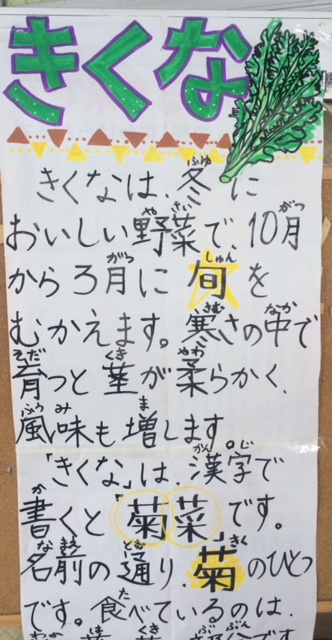 きくな
きくなは、冬に
おいしい野菜で、10月
から3月に旬を
むかえます。寒さの中で
育つと茎が柔らかく、
風味も増します。
「きくな」は、漢字で
書くと「菊菜」です。
名前の通り、菊のひとつ
です。食べているのは、